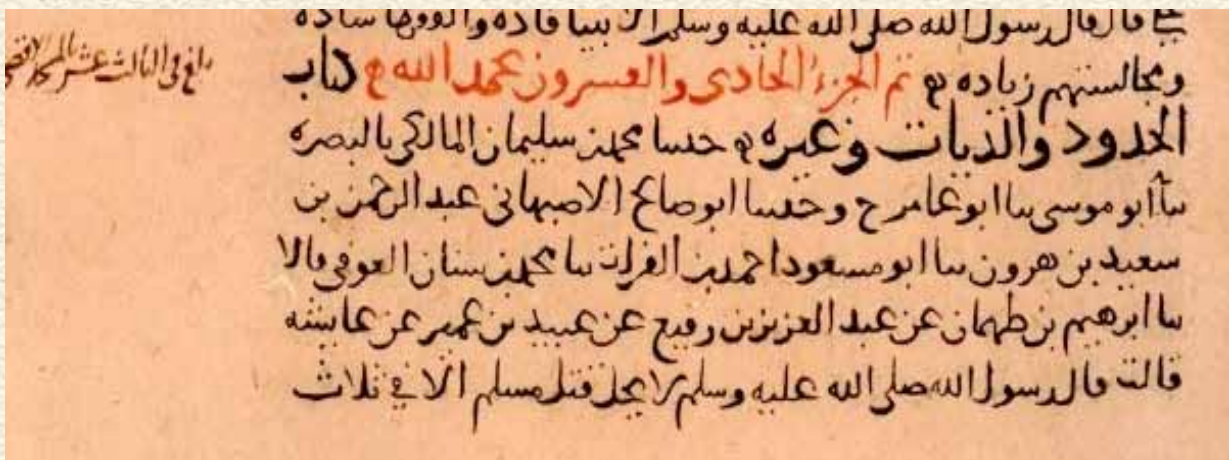 قال قال رسول الله صلى الله عليه وسلم الانبيا قاده والفقها ساده
ومجالستهم زياده تم الجزء الحادي والعشرون بحمد الله كتاب
الحدود والديات وغيره حدثنا محمد بن سليمان المالكي بالبصره
نا أبو موسى نا ابو عامر ح وحدثنا ابو صالح الاصبهاني عبد الرحمن بن
سعيد بن هرون نا ابو مسعود احمد بن الفرات نا محمد بن سنان العوفي قالا
نا ابرهيم بن طهمان عن عبد العزيز بن رفيع عن عبيد بن عمير عن عايشه
قالت قال رسول الله صلى الله عليه وسلم لا يحل قتل مسلم الا في ثلاث
بلغ في الثالث عشر